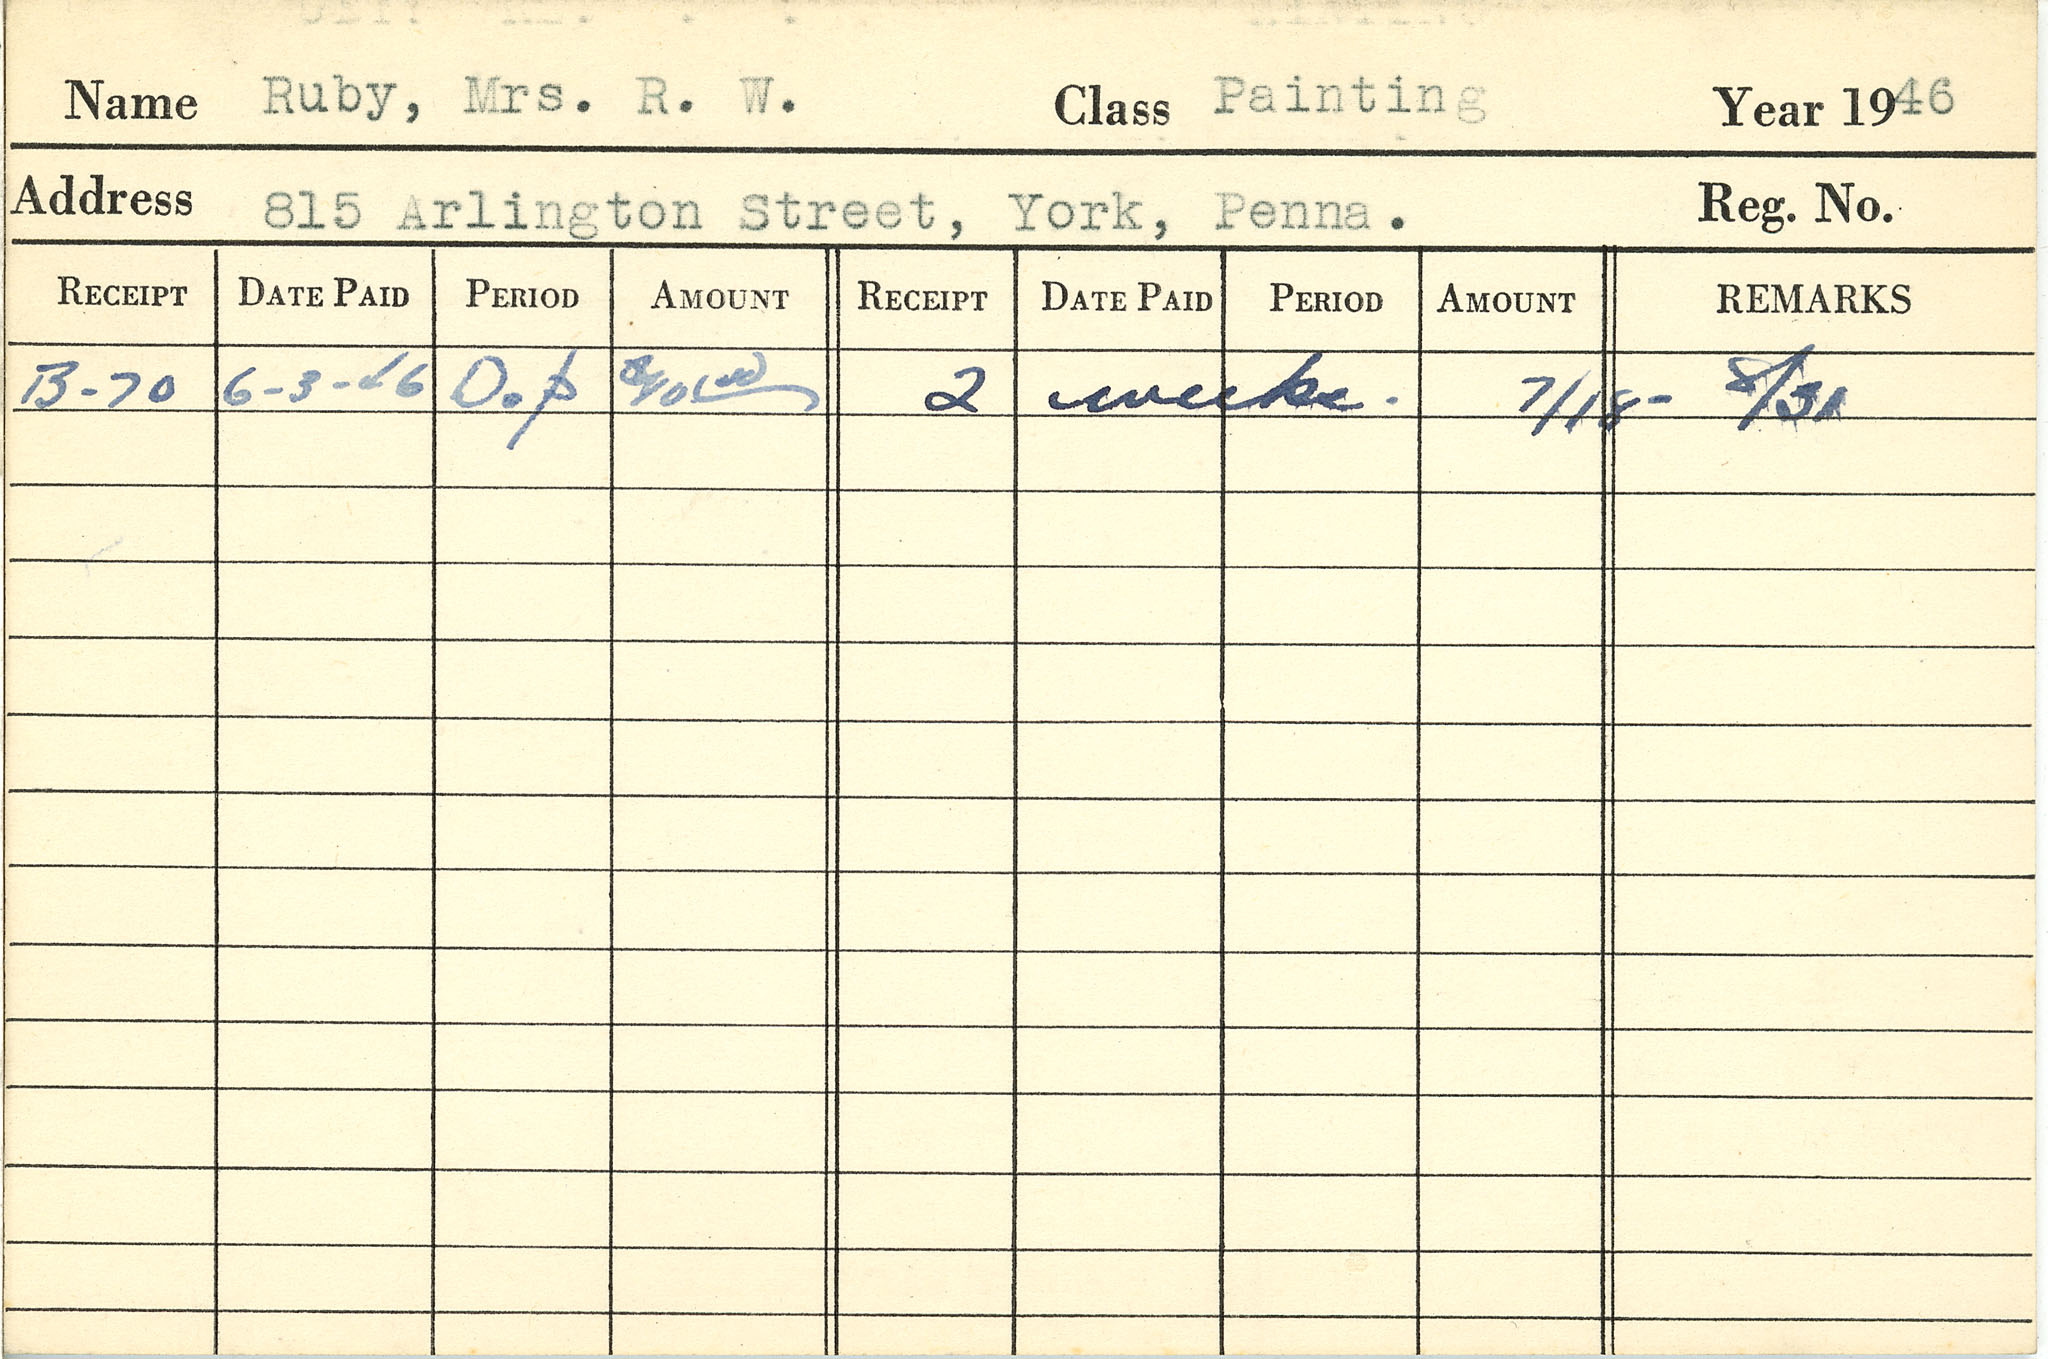 Name Ruby, Mrs. R. W. Class Painting Year 1946
Address 815 Arlington Street, York, Penna. Reg. No.
RECEIPT DATE PAID PERIOD AMOUNT RECEIPT DATE PAID PERIOD AMOUNT REMARKS
B-70 6-3-46 Dep $40.00 2 weeks. 7/18- 8/31